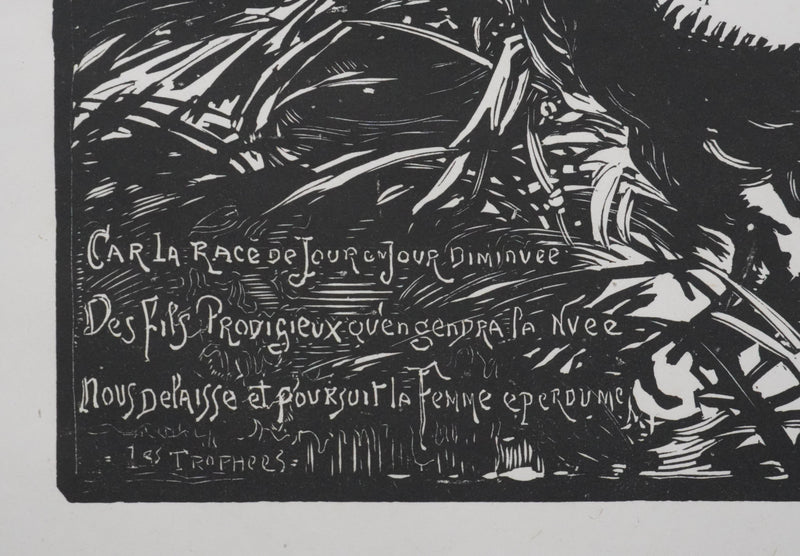 CAR LA RACE DE JOUR EN JOUR DIMINUEE
DES FILS PRODIGIEUX QU'ENGENDRA LA NUEE
NOUS DELAISSE ET POURSUIT LA FEMME EPERDUMENT
= LES TROPHEES =